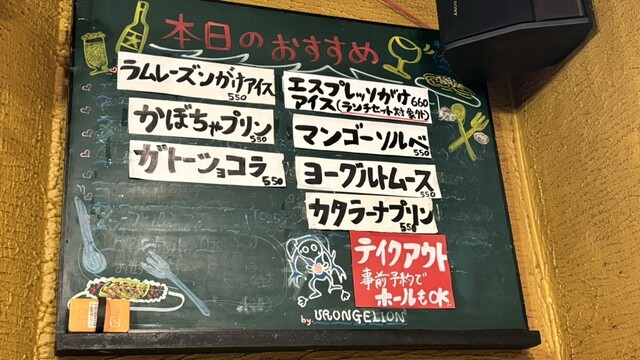 本日のおすすめ
ラムレーズンがけアイス
550
かぼちゃプリン
550
ガトーショコラ
550
エスプレッソがけ
アイス(ランチセット対象外) 660
マンゴーソルベ
550
ヨーグルトムース
550
カタラーナプリン
550
テイクアウト
事前予約で
ホールもOK
by. URONGELION
SONY